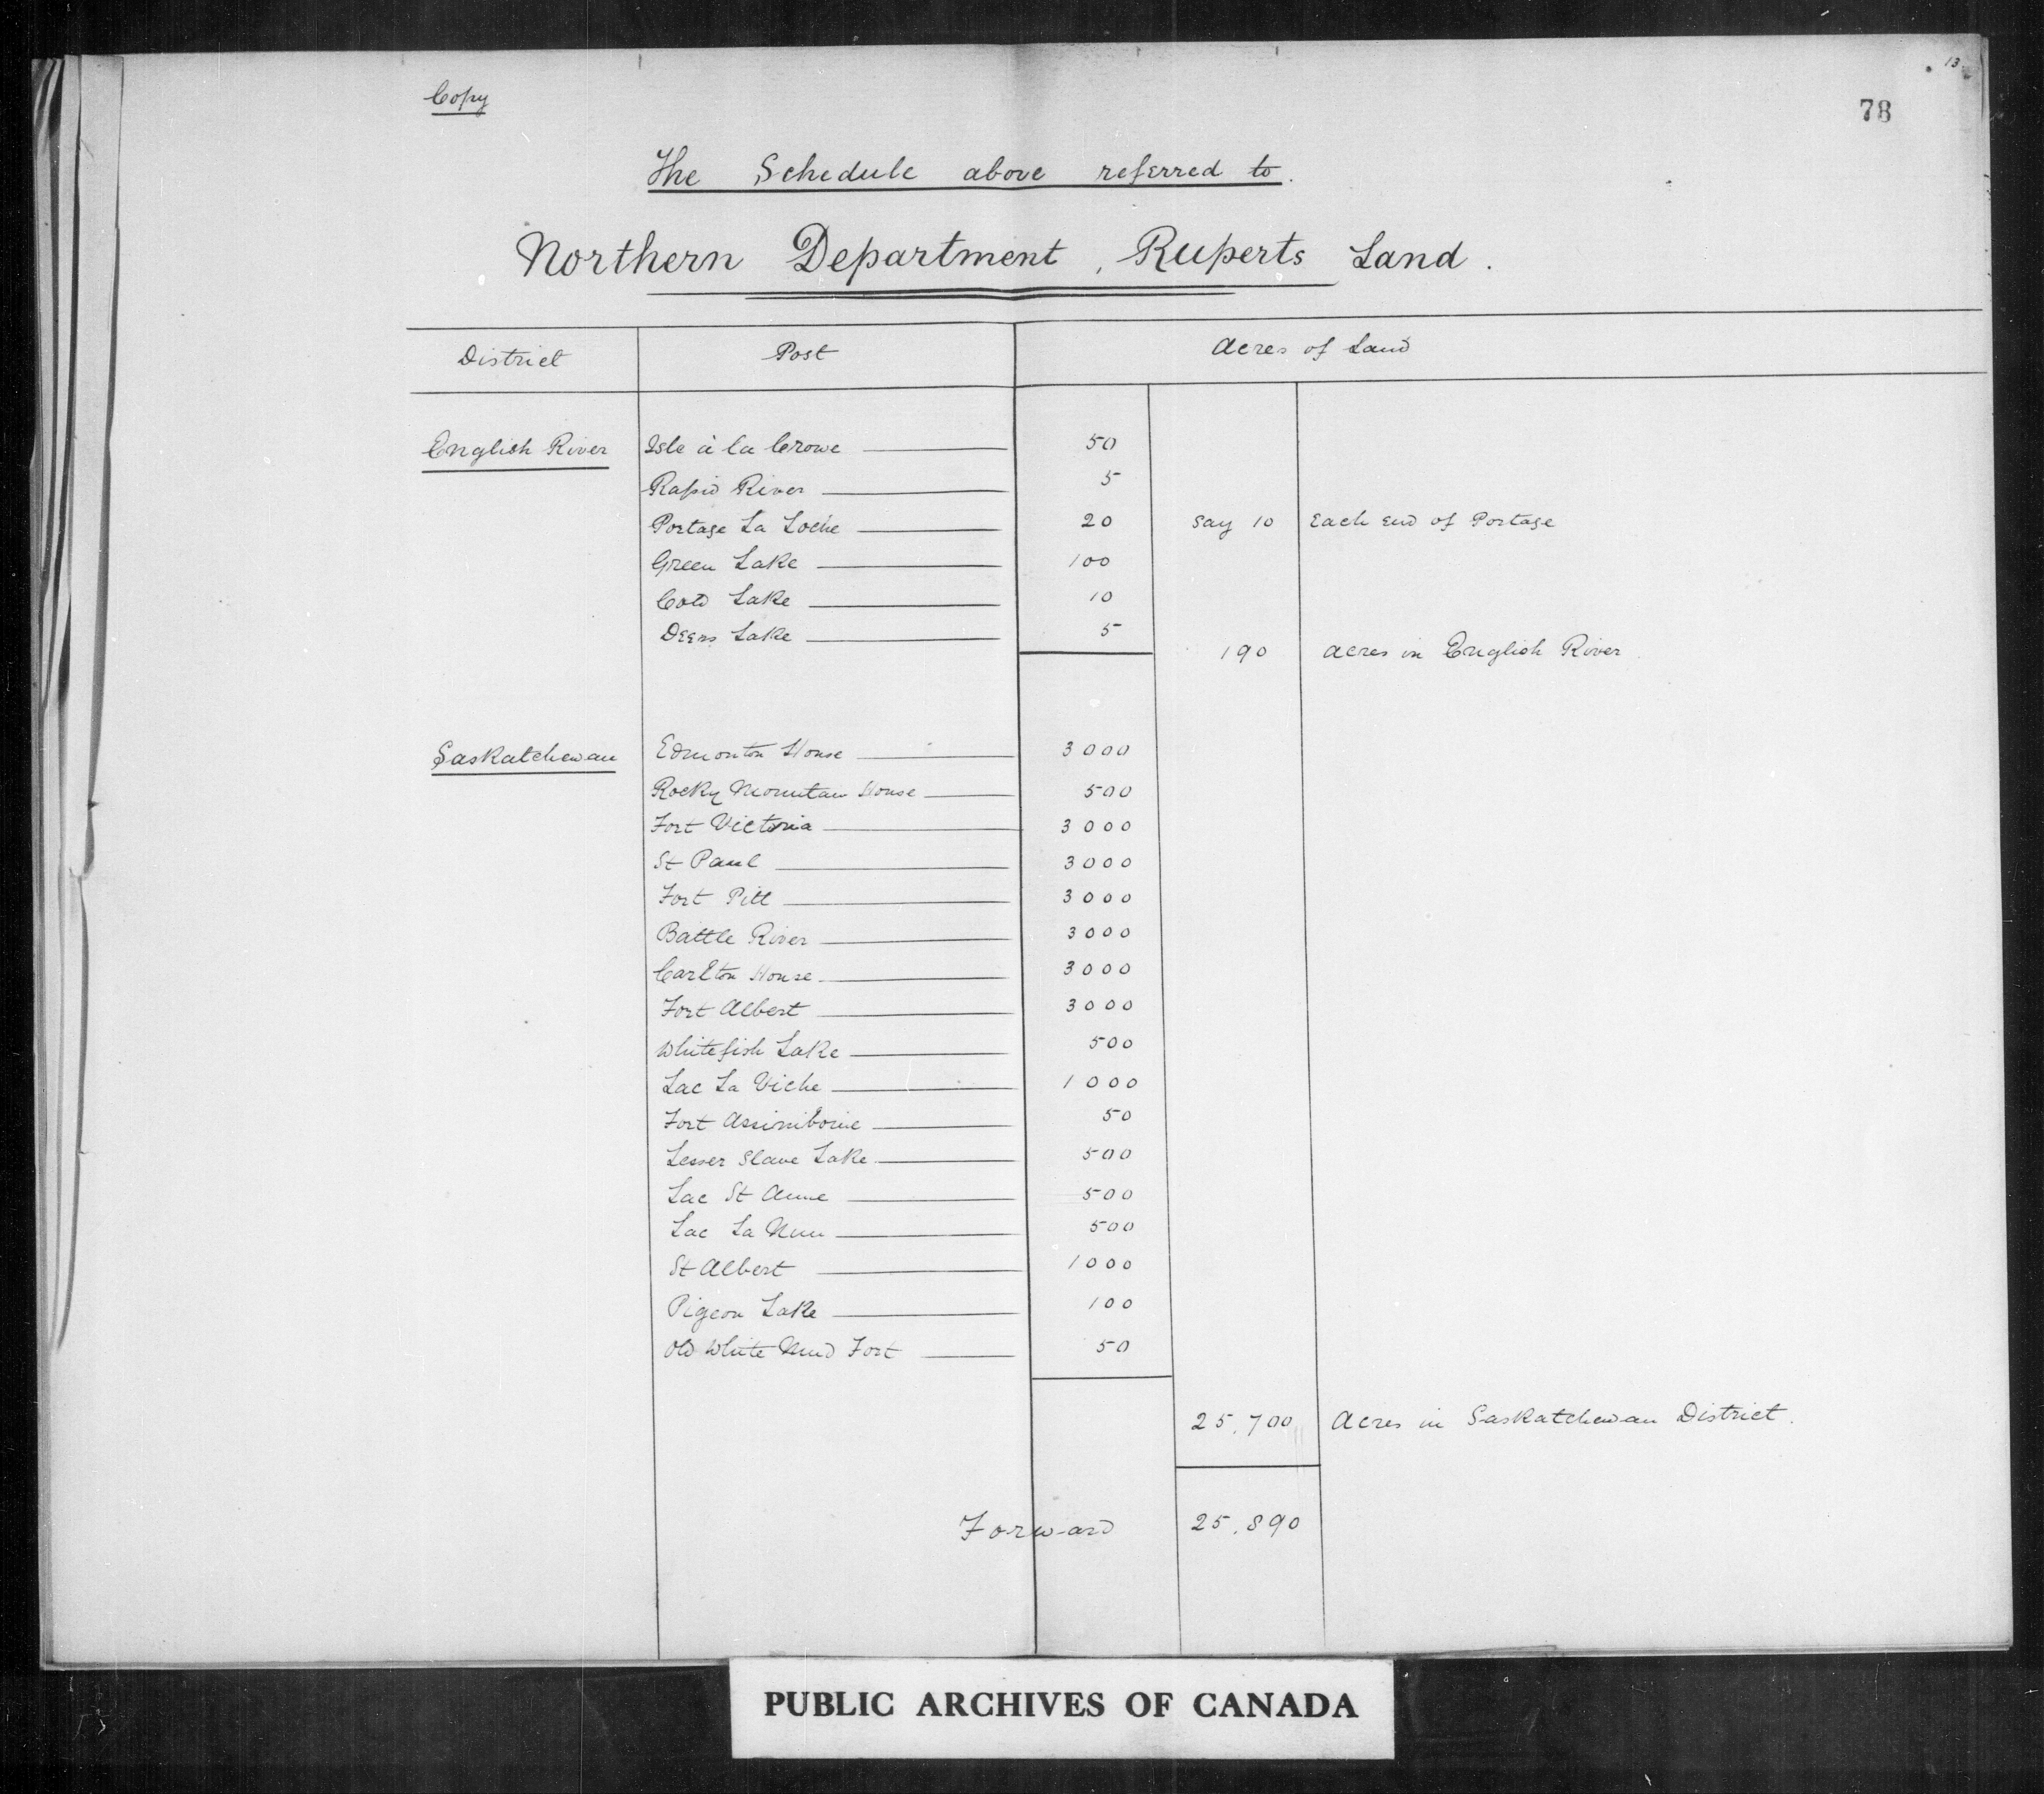 13
Copy
78
The Schedule above referred to.
Northern Department, Ruperts Land.
District Post Acres of Land
English River Isle à la Crowe 50
Rapid River 5
Portage La Loche 20 say 10 Each End of Portage
Green Lake 100
Cold Lake 10
Deers Lake 5
190 acres in English River
Saskatchewan Edmonton House 3000
Rocky Mountain House 500
Fort Victoria 3000
St Paul 3000
Fort Pitt 3000
Battle River 3000
Carlton House 3000
Fort Albert 3000
Whitefish Lake 500
Lac La Biche 1000
Fort Assiniboine 50
Lesser Slave Lake 500
Lac St Anne 500
Lac La Nun 500
St Albert 1000
Pigeon Lake 100
Old White Mud Fort 50
25,700 Acres in Saskatchewan District.
Forward 25,890
PUBLIC ARCHIVES OF CANADA